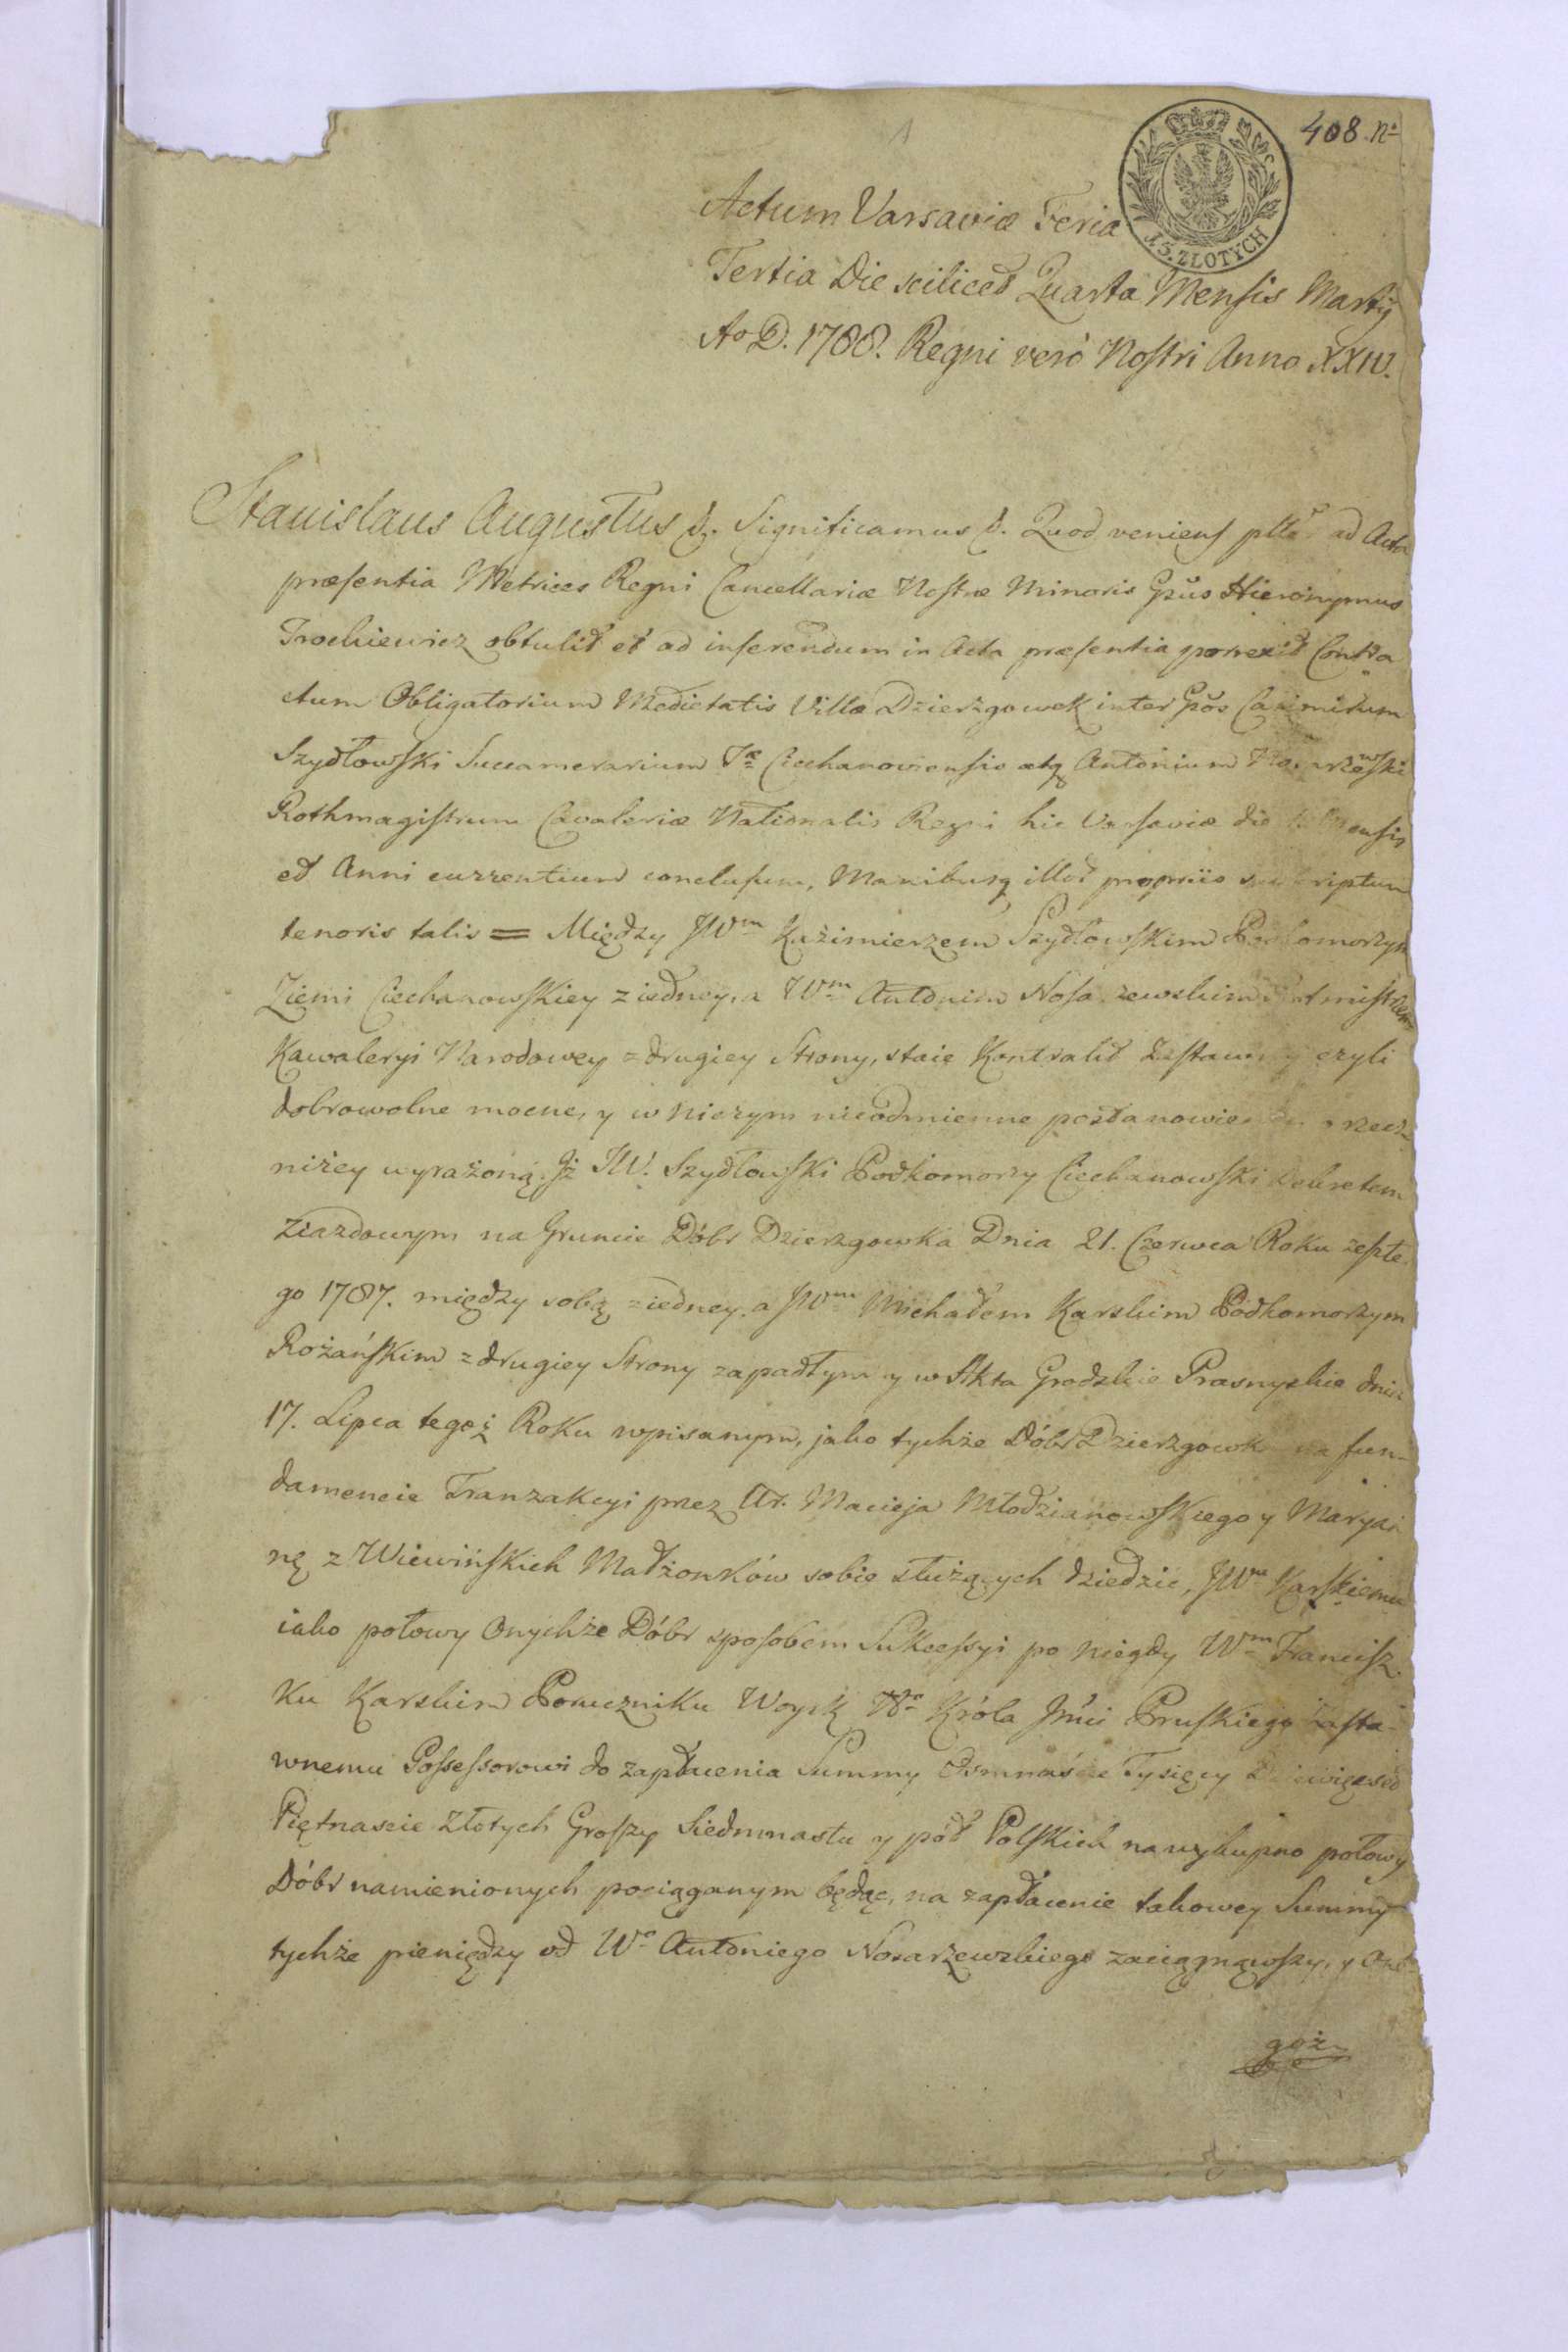 408. No
1
15. ZŁOTYCH
Actum Varsaviæ Feria
Tertia Die scilicet Quarta Mensis Martij
Ao D. 1788. Regni verò Nostri Anno XXIV.
Stanislaus Augustus &. Significamus &. Quod veniens pltr ad Acta
præsentia Metrices Regni Cancellariæ Nostræ Minoris Gnus Hieronymus
Trochiewicz obtulit et ad inserendum in Acta præsentia porrexit Contra
ctum Obligatorium Medietatis Villæ Dzierzgowek inter Gnos Casimirum
Szydłowski Succamerarium Træ Ciechanoviensis atq Antonium Nosarzewski
Rothmagistrum Cavaleriæ Nationalis Regni hic Varsaviæ die Mensis
et Anni currentium conclusum, Manibusq illor propriis subscriptum
tenoris talis = Między JWm Kaźimierzem Szydłowskim Podkomorzym
Ziemi Ciechanowskiey z iedney, a Wm Antonim Nosarzewskim Rotmistrzem
Kawaleryi Narodowey z drugiey Strony, staie Kontrakt Zastawny czyli
dobrowolne mocne, y w niczym nieodmienne postanowienie o rzecz
niżey wyrażoną. Jż JW. Szydłowski Podkomorzy Ciechanowski Dekretem
Ziazdowym na Gruncie Dóbr Dzierzgowka Dnia 21. Czerwca Roku zeszłe
go 1787. między sobą z iedney, a JWm Michałem Karskim Podkomorzym
Rożańskim z drugiey Strony zapadłym y w Akta Grodzkie Prasnyskie dnia
17. Lipca tegoż Roku wpisanym, jako tychże Dóbr Dzierzgowka na fun-
damencie Tranzakcyi przez Ur. Macieja Młodzianowskiego y Maryan
nę z Wiewińskich Małżonków sobie służących dziedzic, JWu Karskiemu
iako połowy Onychże Dóbr sposobem Sukcessyi po niegdy Wm Francisz
ku Karskim Poruczniku Woysk Króla Jmci Pruskiego Zasta-
wnemu Possessorowi do zapłacenia Summy Osmnaście Tysięcy Dziewięcset
Piętnascie Złotych Groszy Siedmnastu y pół Polskich na wykupno połowy
Dóbr namienionych pociąganym będąc, na zapłacenie takowey Summy
tychże pieniędzy od Wo Antoniego Nosarzewskiego zaciągnąwszy, y One
goż